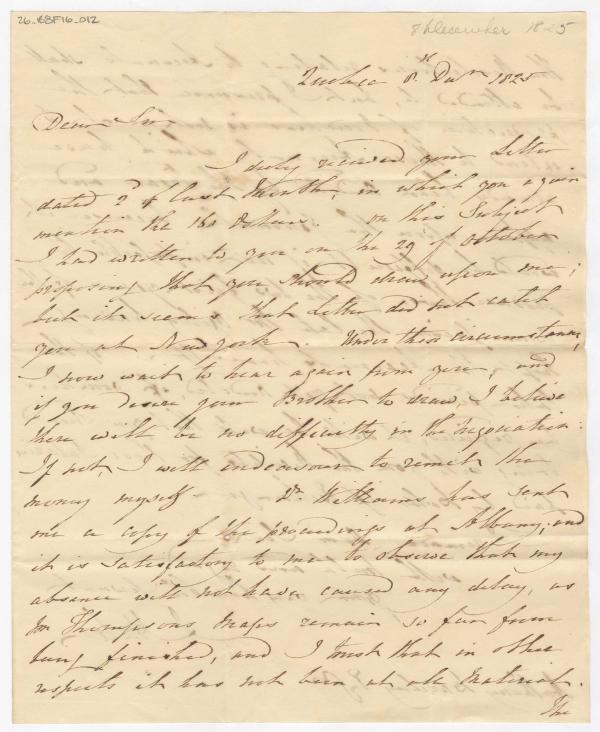 26_BBF16_012
8 December 1825
Quebec 8th Decr 1825
Dear Sir
I duly received your Letter
dated 2d of last Month, in which you again
mention the 160 Dollars. On this Subject
I had written to you on the 29 of October
proposing that you should draw upon me;
but it seems that Letter did not catch
you at New york. Under these circumstances,
I now wait to hear again from you, and
if you desire your Brother to draw, I believe
there will be no difficulty in the Negociation:
If not, I will endeavour to remit the
money myself. Dr. Williams has sent
me a copy of the proceedings at Albany, and
it is satisfactory to me to observe that my
absence will not have caused any delay, as
Mr Thompsons maps remain so far from
being finished, and I trust that in other
respects it has not been at all Material.
The